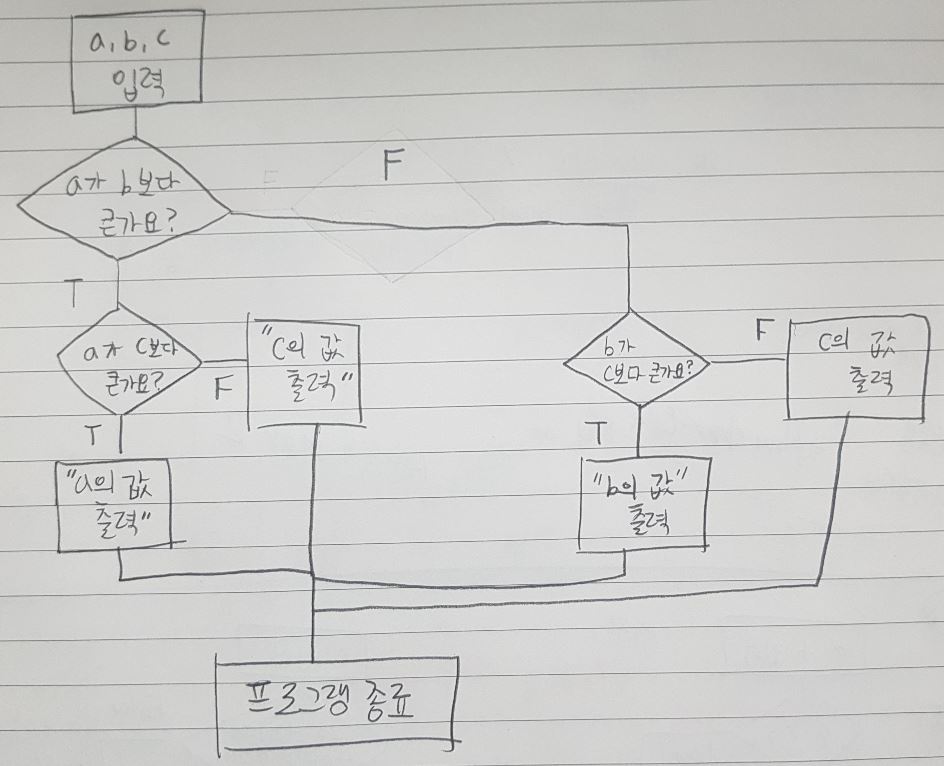 a, b, c
입력
a가 b보다
큰가요?
F
T
a가 c보다
큰가요?
F
"c의 값
출력"
T
"a의 값
출력"
b가
c보다 큰가요?
F
c의 값
출력
T
"b의 값"
출력
프로그램 종료